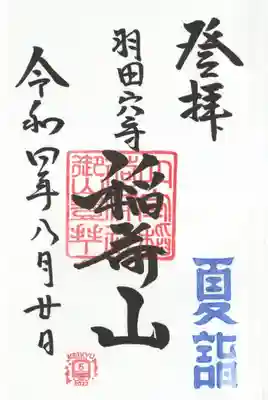 登拝
夏詣
羽田穴守
稲荷山
令和四年八月廿日
KEIKYU